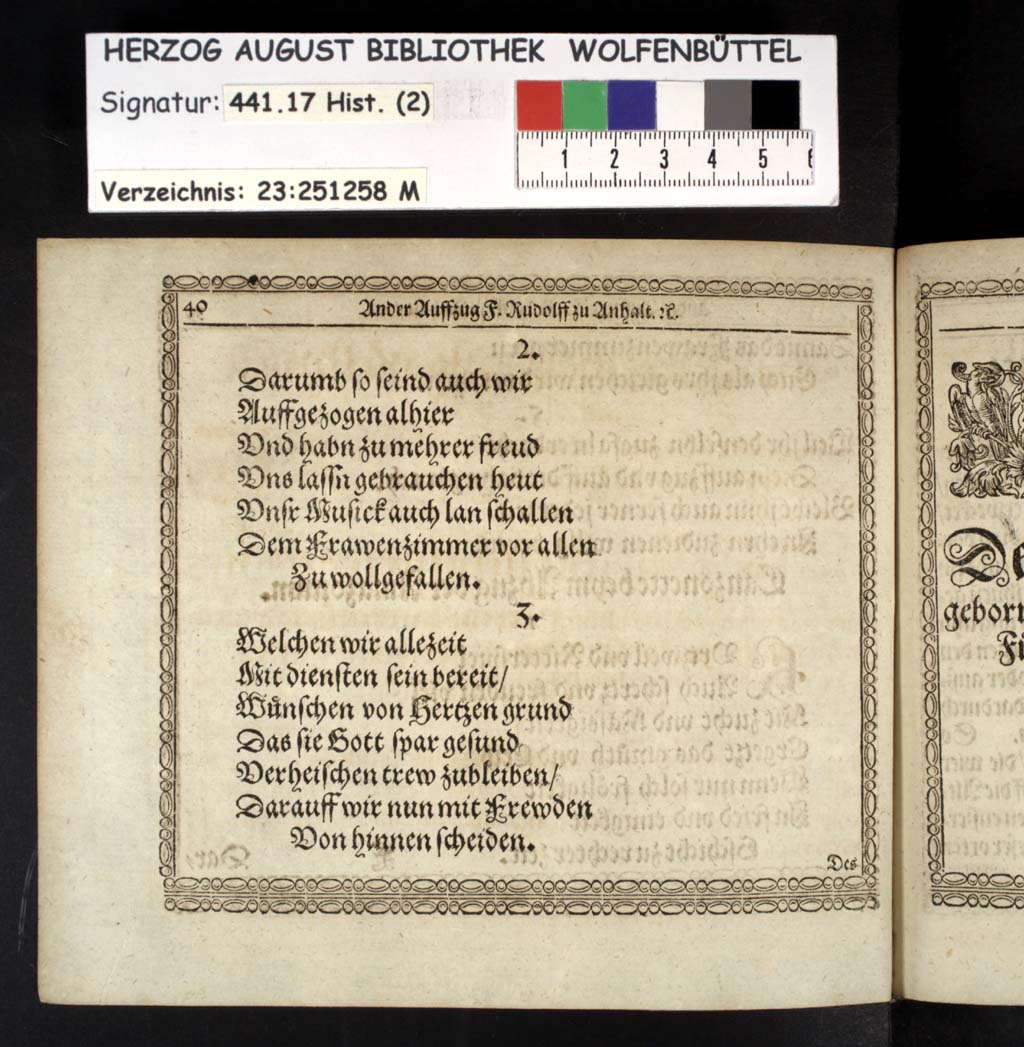 HERZOG AUGUST BIBLIOTHEK WOLFENBÜTTEL
Signatur: 441.17 Hist. (2)
1 2 3 4 5 6
Verzeichnis: 23:251258 M
40 Ander Auffzug F. Rudolff zu Anhalt. ꝛc.
2.
Darumb so seind auch wir
Auffgezogen alhier
Vnd habn zu mehrer freud
Vns lassn gebrauchen heut
Vnsr Musick auch lan schallen
Dem Frawenzimmer vor allen
Zu wollgefallen.
3.
Welchen wir allezeit
Mit diensten sein bereit/
Wünschen von Hertzen grund
Das sie Gott spar gesund
Verheischen trew zubleiben/
Darauff wir nun mit Frewden
Von hinnen scheiden.
Des
De
geborn